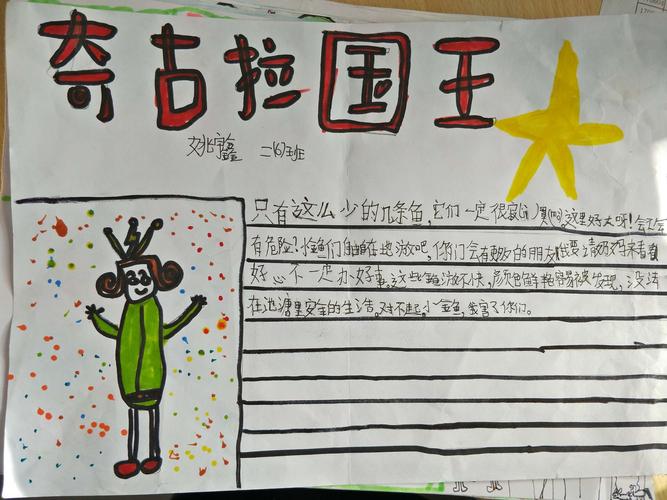 奇古拉国王
姚宇鑫 二(6)班
只有这么少的几条鱼,它们一定很寂 这里好大呀!会不会
有危险?金鱼们自由自在地游吧,你们会有更多的朋友 要请奶妈来看看
好心不一定办好事。这些金鱼游不快,颜色鲜艳容易被发现,没法
在池塘里安全的生活。对不起,小金鱼,我害了你们。